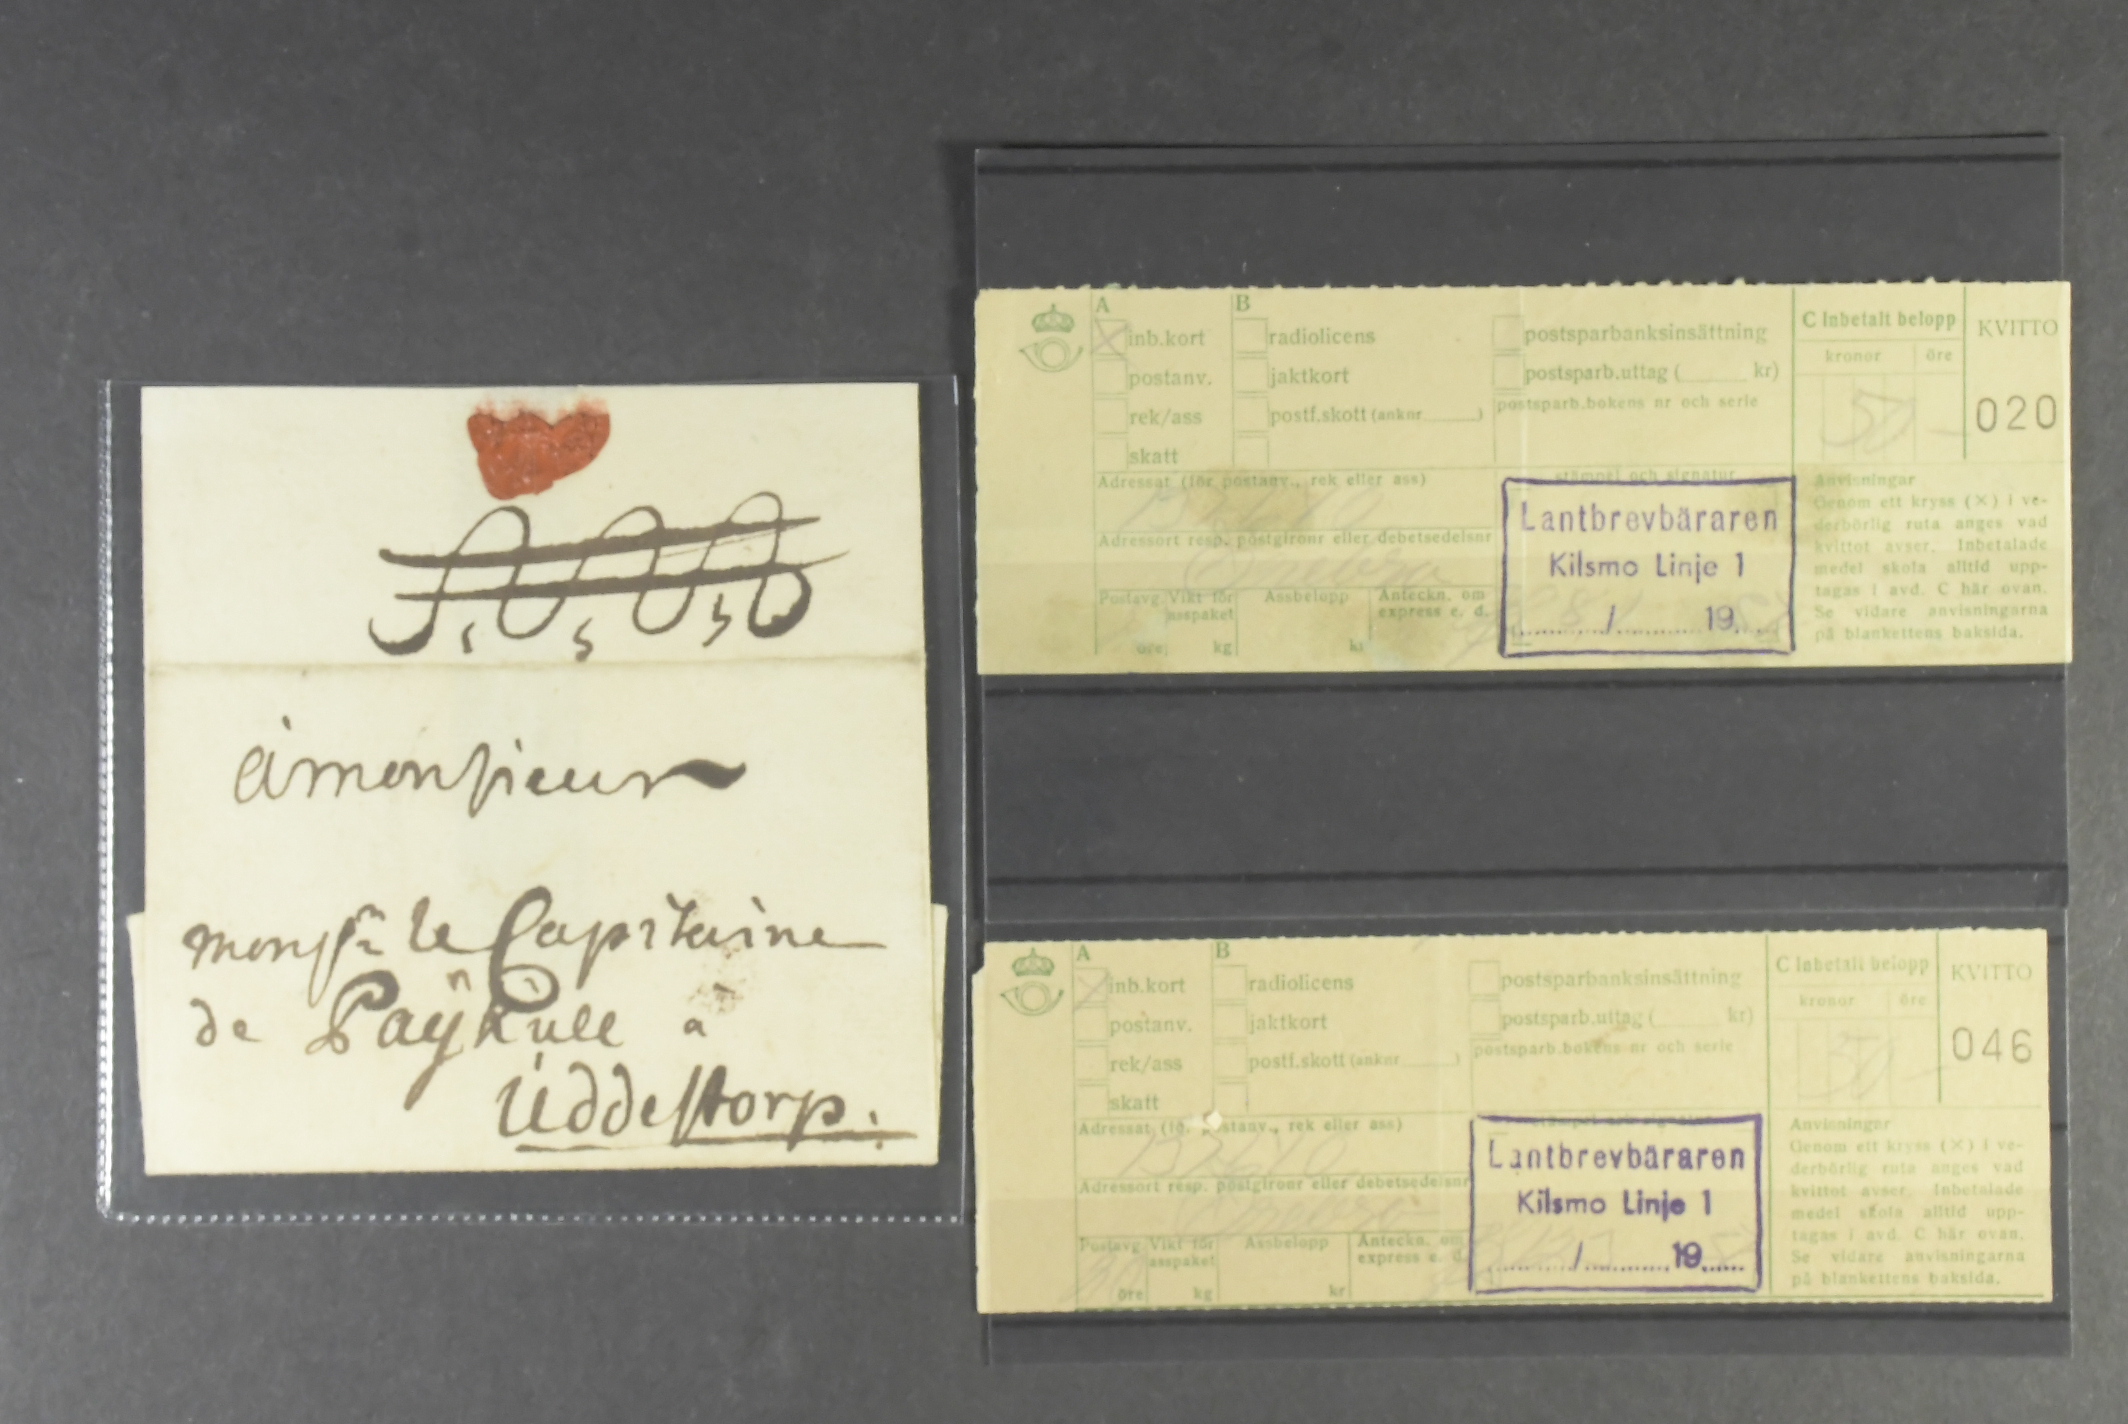 àmonsieur
monsr le Capitaine
de Paÿkull a
Uddestorp.
A
inb.kort
postanv.
rek/ass
skatt
B
radiolicens
jaktkort
postf.skott (anknr ........)
postsparbanksinsättning
postsparb.uttag (______ kr)
postsparb.bokens nr och serie
C Inbetalt belopp
kronor öre
50 -
KVITTO
020
Adressat (för postanv., rek eller ass)
132640
Adressort resp. postgironr eller debetsedelsnr
Örebro
Postavg. Vikt för asspaket
Assbelopp
Anteckn. om express e. d.
öre kg kr
stämpel och signatur
Lantbrevbäraren
Kilsmo Linje 1
......../........ 19.....
Anvisningar
Genom ett kryss (X) i ve-
derbörlig ruta anges vad
kvittot avser. Inbetalade
medel skola alltid upp-
tagas i avd. C här ovan.
Se vidare anvisningarna
på blankettens baksida.
A
inb.kort
postanv.
rek/ass
skatt
B
radiolicens
jaktkort
postf.skott (anknr ........)
postsparbanksinsättning
postsparb.uttag (______ kr)
postsparb.bokens nr och serie
C Inbetalt belopp
kronor öre
50 -
KVITTO
046
Adressat (för postanv., rek eller ass)
132640
Adressort resp. postgironr eller debetsedelsnr
Örebro
Postavg. Vikt för asspaket
Assbelopp
Anteckn. om express e. d.
30 öre kg kr
Lantbrevbäraren
Kilsmo Linje 1
......../........ 19.....
Anvisningar
Genom ett kryss (X) i ve-
derbörlig ruta anges vad
kvittot avser. Inbetalade
medel skola alltid upp-
tagas i avd. C här ovan.
Se vidare anvisningarna
på blankettens baksida.